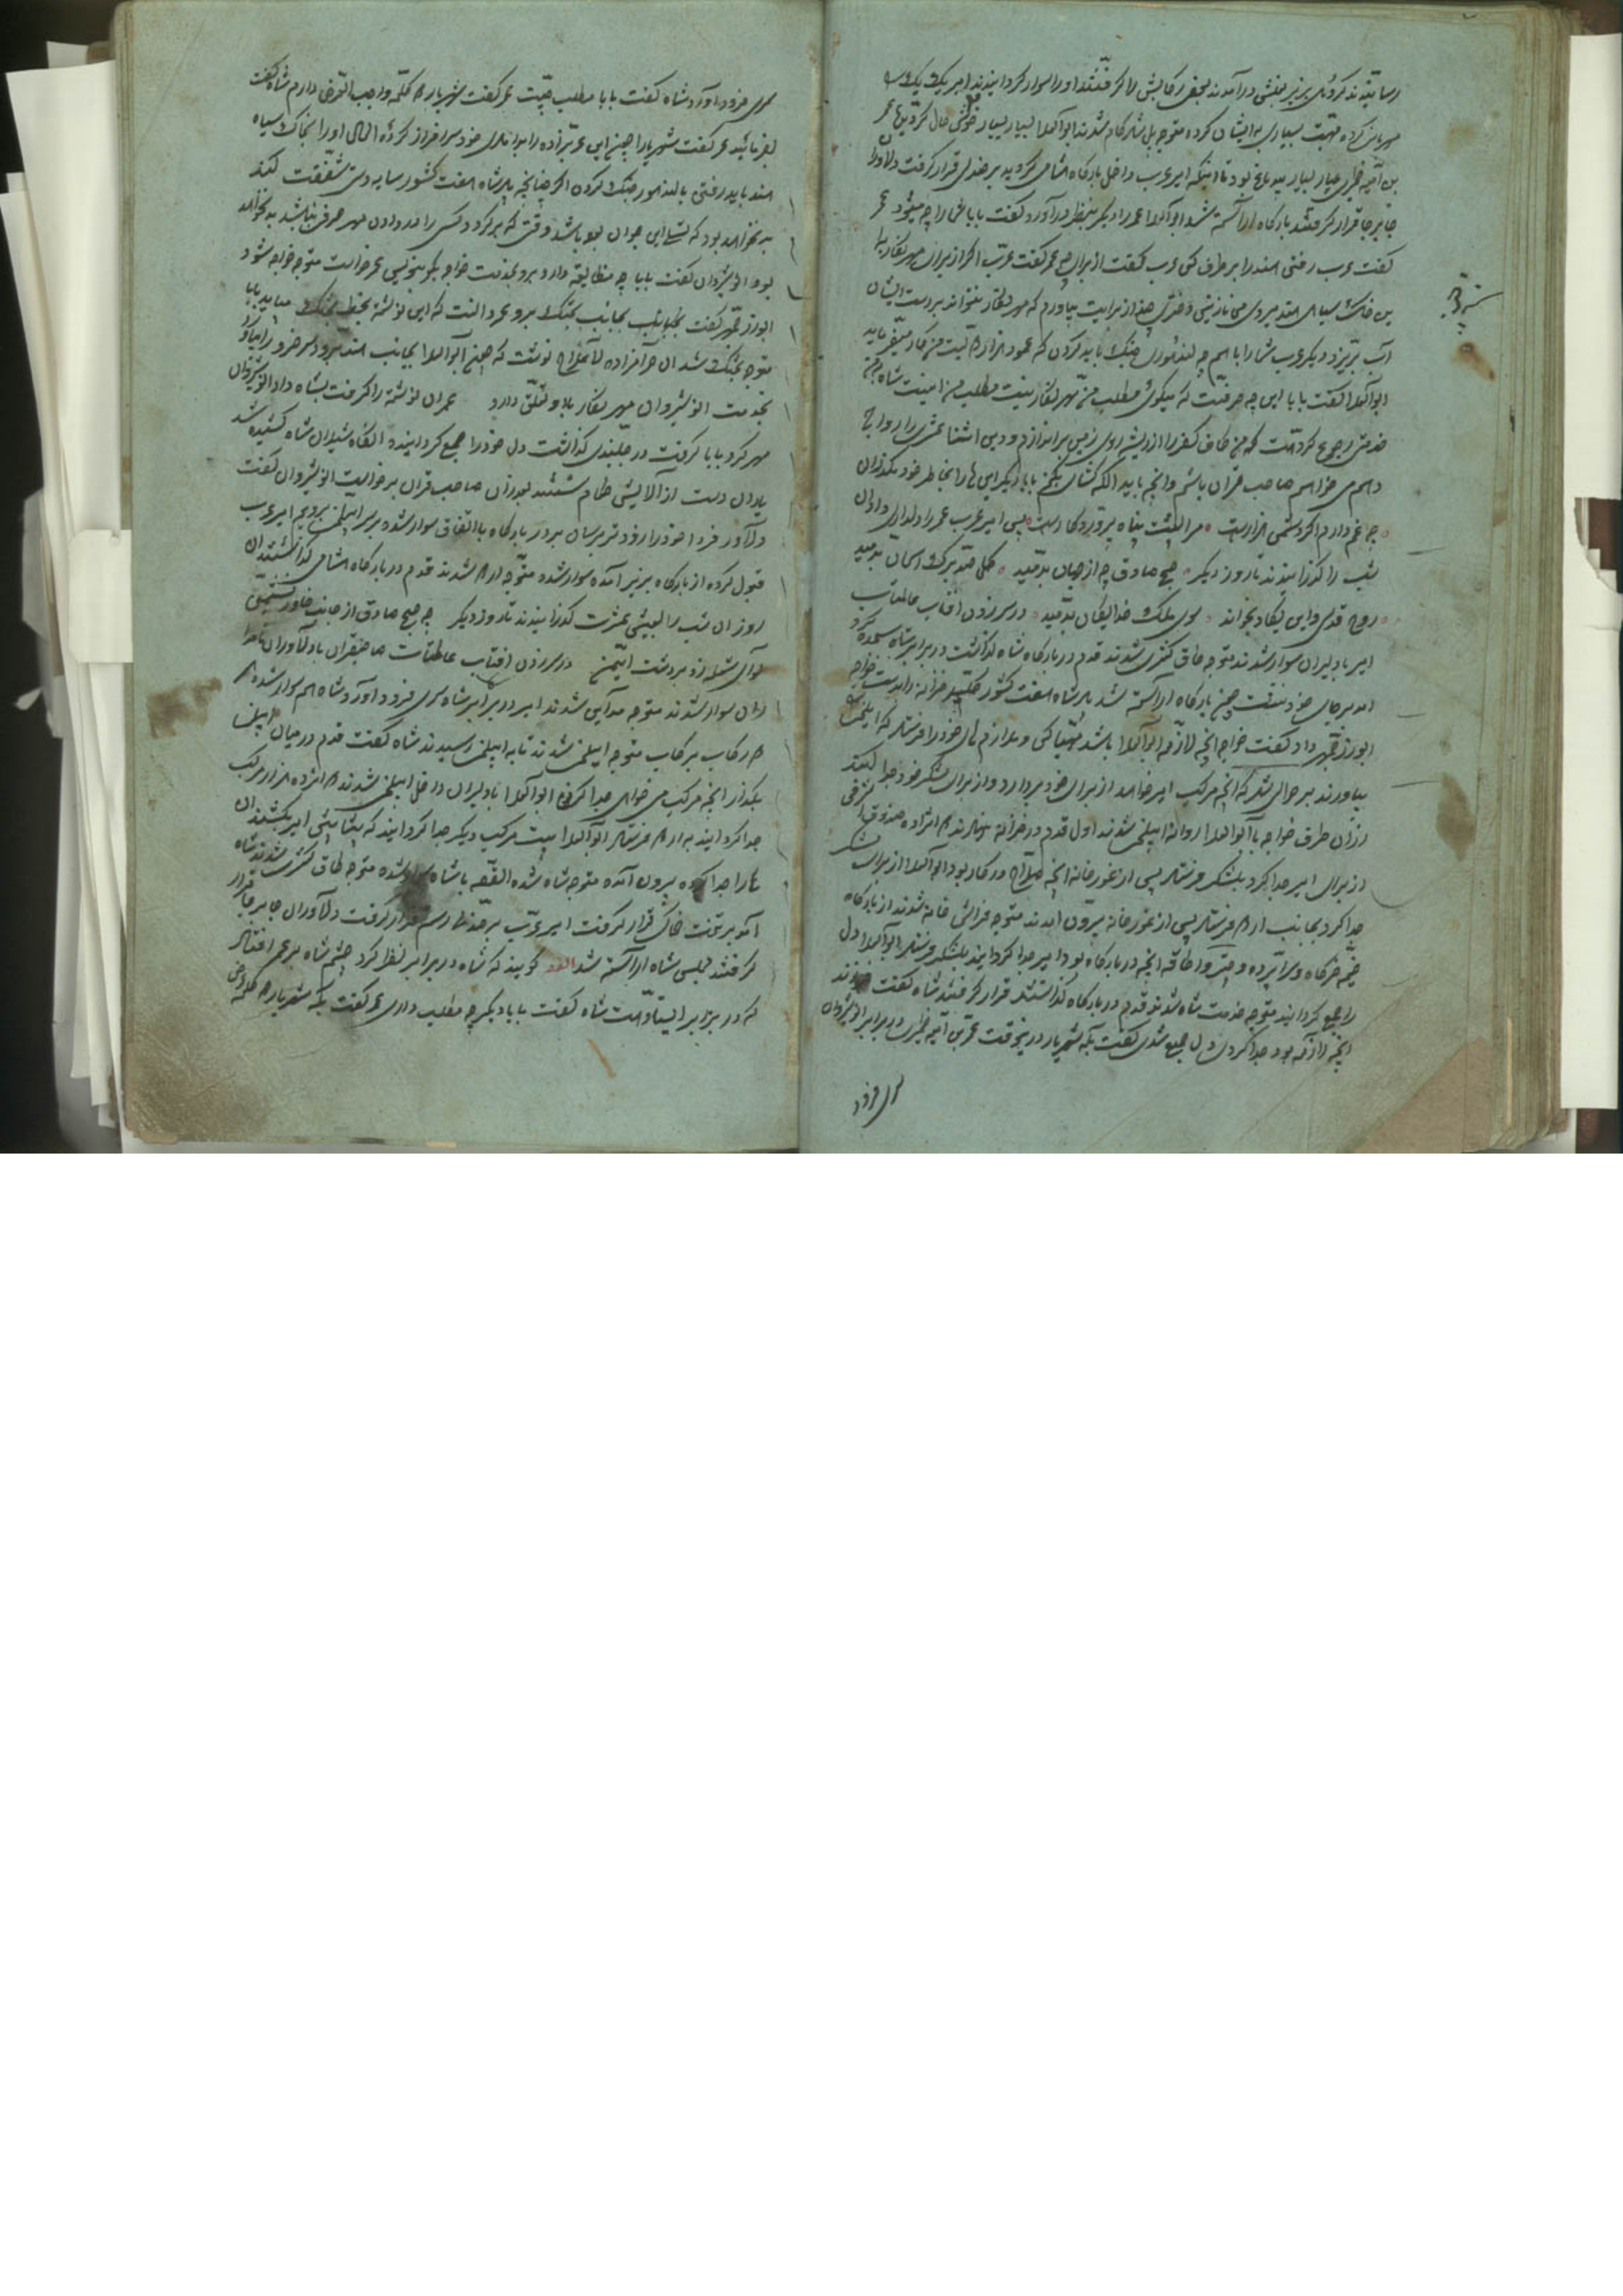 رسانیدند کردی بر زیر بغلش درآمدند بعضی رکابش را گرفتند او را سوار کردانیدند امیر یک یک
مهربانی کرده بسیاری به ایشان کرده متوجه بل شاد کام شدند ابوالعلا بسیار بسیار خوش حال
بن امیه ضمری بسیار بسیار بود تا اینکه امیر عرب داخل بارکاه شاهی کردید بر صندلی قرار گرفت
جابرجا قرار گرفتند بارکاه آراسته شد ابوالعلا عمر را دیگر بنظر درآورد گفت بابا را چه میشود عمر
گفت عرب رفتن هند را بر طرف کن عرب گفت از برای چه عمر گفت عرب اگر از برای مهرنکار
هند میروی من نازنین دختری هند از برایت بیاورم که مهرنکار نتواند بر دست ایشان
آب بریزد دیگر عرب شما را با هم چه لندهور جنک باید کردن که عمود هزار
ابوالعلا گفت بابا این چه حرفست که میکوی مطلب من مهرنکار نیست مطلب من اینست شاه
خدمتی رجوع کرده است که من طاق کفر را از ریشه روی زمین براندازم و دین اثنا عشری را رواج
دهم می خواهم صاحب قران باشم وانچه باید الکه کشائی بکنم بابا دیگر این ها را بخاطر خود مگذران
چه غم دارم اگر دشمن هزارست مرا پشت پناه پروردکارست پس امیر عرب عمر را دلداری داد ان
شب را گذرانیدند تا روز دیگر صبح صادق چه از جهان بدمید گل صد برک آسمان بدمید
روح قدس واین یکاد بخواند سوی ملک خدایگان بدمید در سر زدن افتاب عالمتاب
امیر با دلیران سوار شدند متوجه طاق کسری شدند قدم در بارکاه شاه گذاشت در برابر شاه سجده کرد
امد بر جای خود نشست چون بارکاه آراسته شد پادشاه هفت کشور کلید خزانه را بدست خواجه
ابوزرجمهر داد گفت خواجه انچه لازمه ابوالعلا باشد مهیا کن و ملازم های خود را فرستاد که ایلخی
بیاورند بر حوالی شهر که انچه مرکب امیر خواهد از برای خود بردارد واز برای لشکر خود جدا کند
ازان طرف خواجه با ابوالعلا روانه ایلخی شدند اول قدم در خزانه نهادند هژده صندوق اشرفی
از برای امیر جدا کرد بلشکر فرستاد پس از غورخانه انچه سلاح در کار بود ابوالعلا از برای لشکر
جدا کرد بجانب فرستاد پس از غورخانه بیرون امدند متوجه فراش خانه شدند از بارکاه
خیمه خرکاه و سراپرده و چتر و طاقه انچه در بارکاه بود امیر جدا کردانید بلشکر فرستاد ابوالعلا دل
را جمع کردانید متوجه خدمت شاه شدند قدم در بارکاه گذاشتند قرار گرفتند شاه گفت فرزند
انچه لازمه بود جدا کردی دل جمع شدی گفت بله شهریار درینوقت عمر بن امیه ضمری در برابر انوشیروان
سر فرود
سری فرود آورد شاه گفت بابا مطلب چیست عمر گفت شهریار کلمه واجب العرض دارم شاه گفت
بفرمائید عمر گفت شهریارا چون این عرب زاده را به دامادی خود سرافراز کرده الحال او را بخاک سیاه
هند باید رفتن با لندهور جنک کردن اگر چنانچه پادشاه هفت کشور سایه دست شفقت کند
بد نخواهد بود که تسلی این جوان بوده باشد وقتی که برگردد کسی را در دادن مهر حرفی نباشد بد نخواهد
بود انوشیروان گفت بابا چه مضایقه دارد برو بخدمت خواجه بکو بنویس عمر خواست متوجه خواجه شود
ابوزرجمهر گفت بجانب بختک برو عمر دانست که این نوشته بخط بختک میباید بابا
متوجه بختک شد ان حرامزاده لاعلاج نوشت که چون ابوالعلا بجانب هند برود سر خسرو را بیاورد
بخدمت انوشیروان مهرنکار باو تعلق دارد عمر ان نوشته را گرفت بشاه داد انوشیروان
مهر کرد بابا گرفت در جلبندی گذاشت دل خود را جمع کردانید و انکاه شیلان شاه کشیده شد
یاران دست از آلایش طعام شستند بعد از ان صاحب قران برخواست انوشیروان گفت
دلاور فردا خود را زودتر برسان بر در بارکاه باتفاق سوار شده بر سر ایلخی برویم امیر عرب
قبول کرده از بارکاه بزیر آمده سوار شده متوجه شدند قدم در بارکاه شاهی گذاشتند ان
روز ان شب را بعیش عشرت گذرانیدند تا روز دیگر چه صبح صادق از جانب خاور
لوای شعله زد بر دشت ایمن در سر زدن افتاب عالمتاب صاحبقران با دلاوران نامدا
ران سوار شدند متوجه مداین شدند امیر در برابر شاه سری فرود آورد شاه هم سوار شده
رکاب بر رکاب متوجه ایلخی شدند تا به ایلخی رسیدند شاه گفت قدم در میان ایلخی
بگذار انچه مرکب می خواهی جدا کن ابوالعلا با دلیران داخل ایلخی شدند هژده هزار مرکب
جدا کردانید به فرستاد ابوالعلا بیست مرکب دیگر جدا کردانید که پیشاپیش امیر بکشند ان
ها را جدا کرده بیرون آمده متوجه شاه شده القصه با شاه سوار شده متوجه طاق کسری شدند شاه
آمد بر تخت خاک قرار گرفت امیر عرب بر صندلی رستم قرار گرفت دلاوران جابرجا قرار
گرفتند مجلس شاه آراسته شد القصه گویند که شاه در برابر نظر کرد چشم شاه بر عمر افتاد
که در برابر ایستاده است شاه گفت بابا دیگر چه مطلب داری عمر گفت بله شهریار کلمه